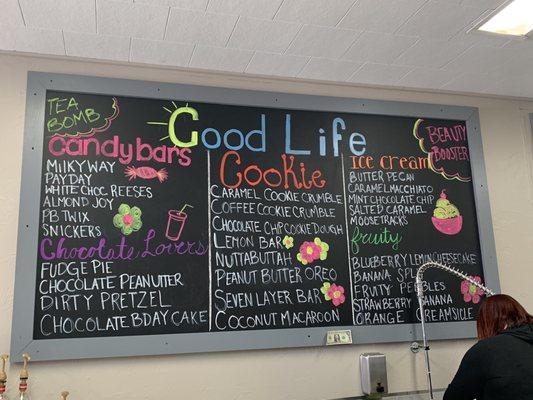 TEA
BOMB
Good Life
BEAUTY
BOOSTER
Candybars
MILKYWAY
PAYDAY
WHITE CHOC REESES
ALMOND JOY
PB TWIX
SNICKERS
Chocolate Lovers
FUDGE PIE
CHOCOLATE PEANUTTER
DIRTY PRETZEL
CHOCOLATE BDAY CAKE
Cookie
CARAMEL COOKIE CRUMBLE
COFFEE COOKIE CRUMBLE
CHOCOLATE CHIP COOKIE DOUGH
LEMON BAR
NUTTABUTTAH
PEANUT BUTTER OREO
SEVEN LAYER BAR
COCONUT MACAROON
ICE CREAM
BUTTER PECAN
CARAMEL MACCHIATO
MINT CHOC CHIP
SALTED CARAMEL
MOOSETRACKS
fruity
BLUEBERRY LEMON CHEESECAKE
BANANA
FRUITY PEBBLES
STRAWBERRY BANANA
ORANGE CREAMSICLE